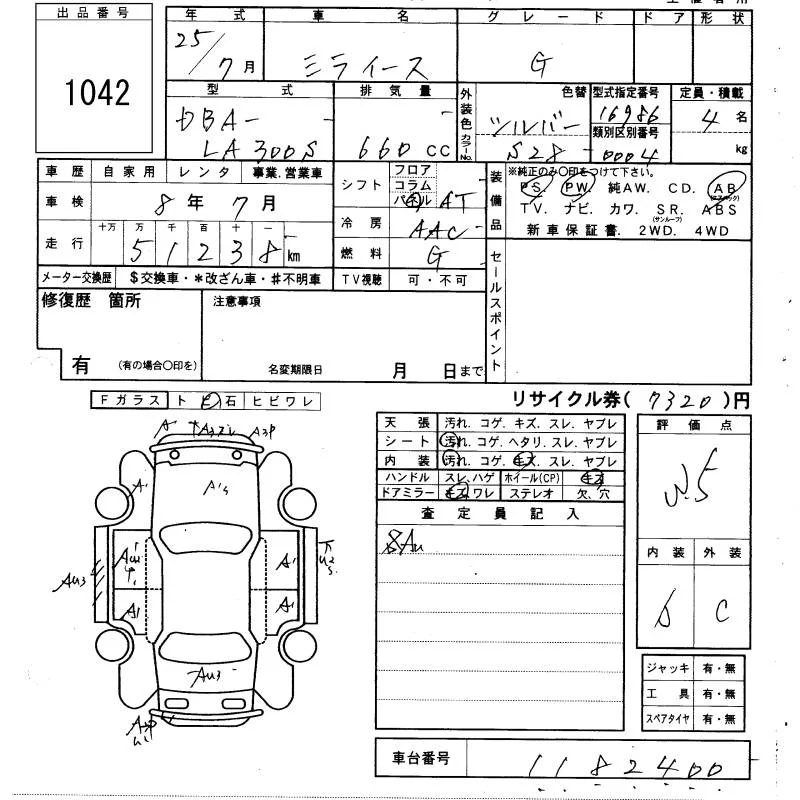 出品番号
1042
年式 車名 グレード ドア 形状
25/7月 ミライース G
型式 排気量 外装色 カラーNo. 色替 型式指定番号 定員・積載
DBA-
LA300S 660 CC シルバー S28 16986 4名
類別区別番号
0004 kg
車歴 自家用 レンタ 事業.営業車
車検 8年 7月
走行 十万 万 千 百 十 一
51238 km
メーター交換歴 $交換車・*改ざん車・#不明車
シフト フロア コラム パネル AT
冷房 AAC
燃料 G
TV視聴 可・不可
装備品
※純正のみ〇印をつけて下さい。
PS. PW. 純AW. CD. AB
(エアバック)
TV. ナビ. カワ. SR. ABS
(サンルーフ)
新車保証書. 2WD. 4WD
修復歴 箇所
有 (有の場合〇印を)
注意事項
名変期限日 月 日まで
セールスポイント
リサイクル券( 7320 )円
Fガラス ト ビ 石 ヒビワレ
A A3P
A1
A1
A1
A1
A1
Au3
Au3
天張 汚れ. コゲ. キズ. スレ. ヤブレ
シート 汚れ. コゲ. ヘタリ. スレ. ヤブレ
内装 汚れ. コゲ. キズ. スレ. ヤブレ
ハンドル スレ.ハゲ ホイール(CP) キズ
ドアミラー キズ.ワレ ステレオ 欠、穴
査定員記入
8Au
評価点
内装 外装
C
ジャッキ 有・無
工具 有・無
スペアタイヤ 有・無
車台番号 1182400